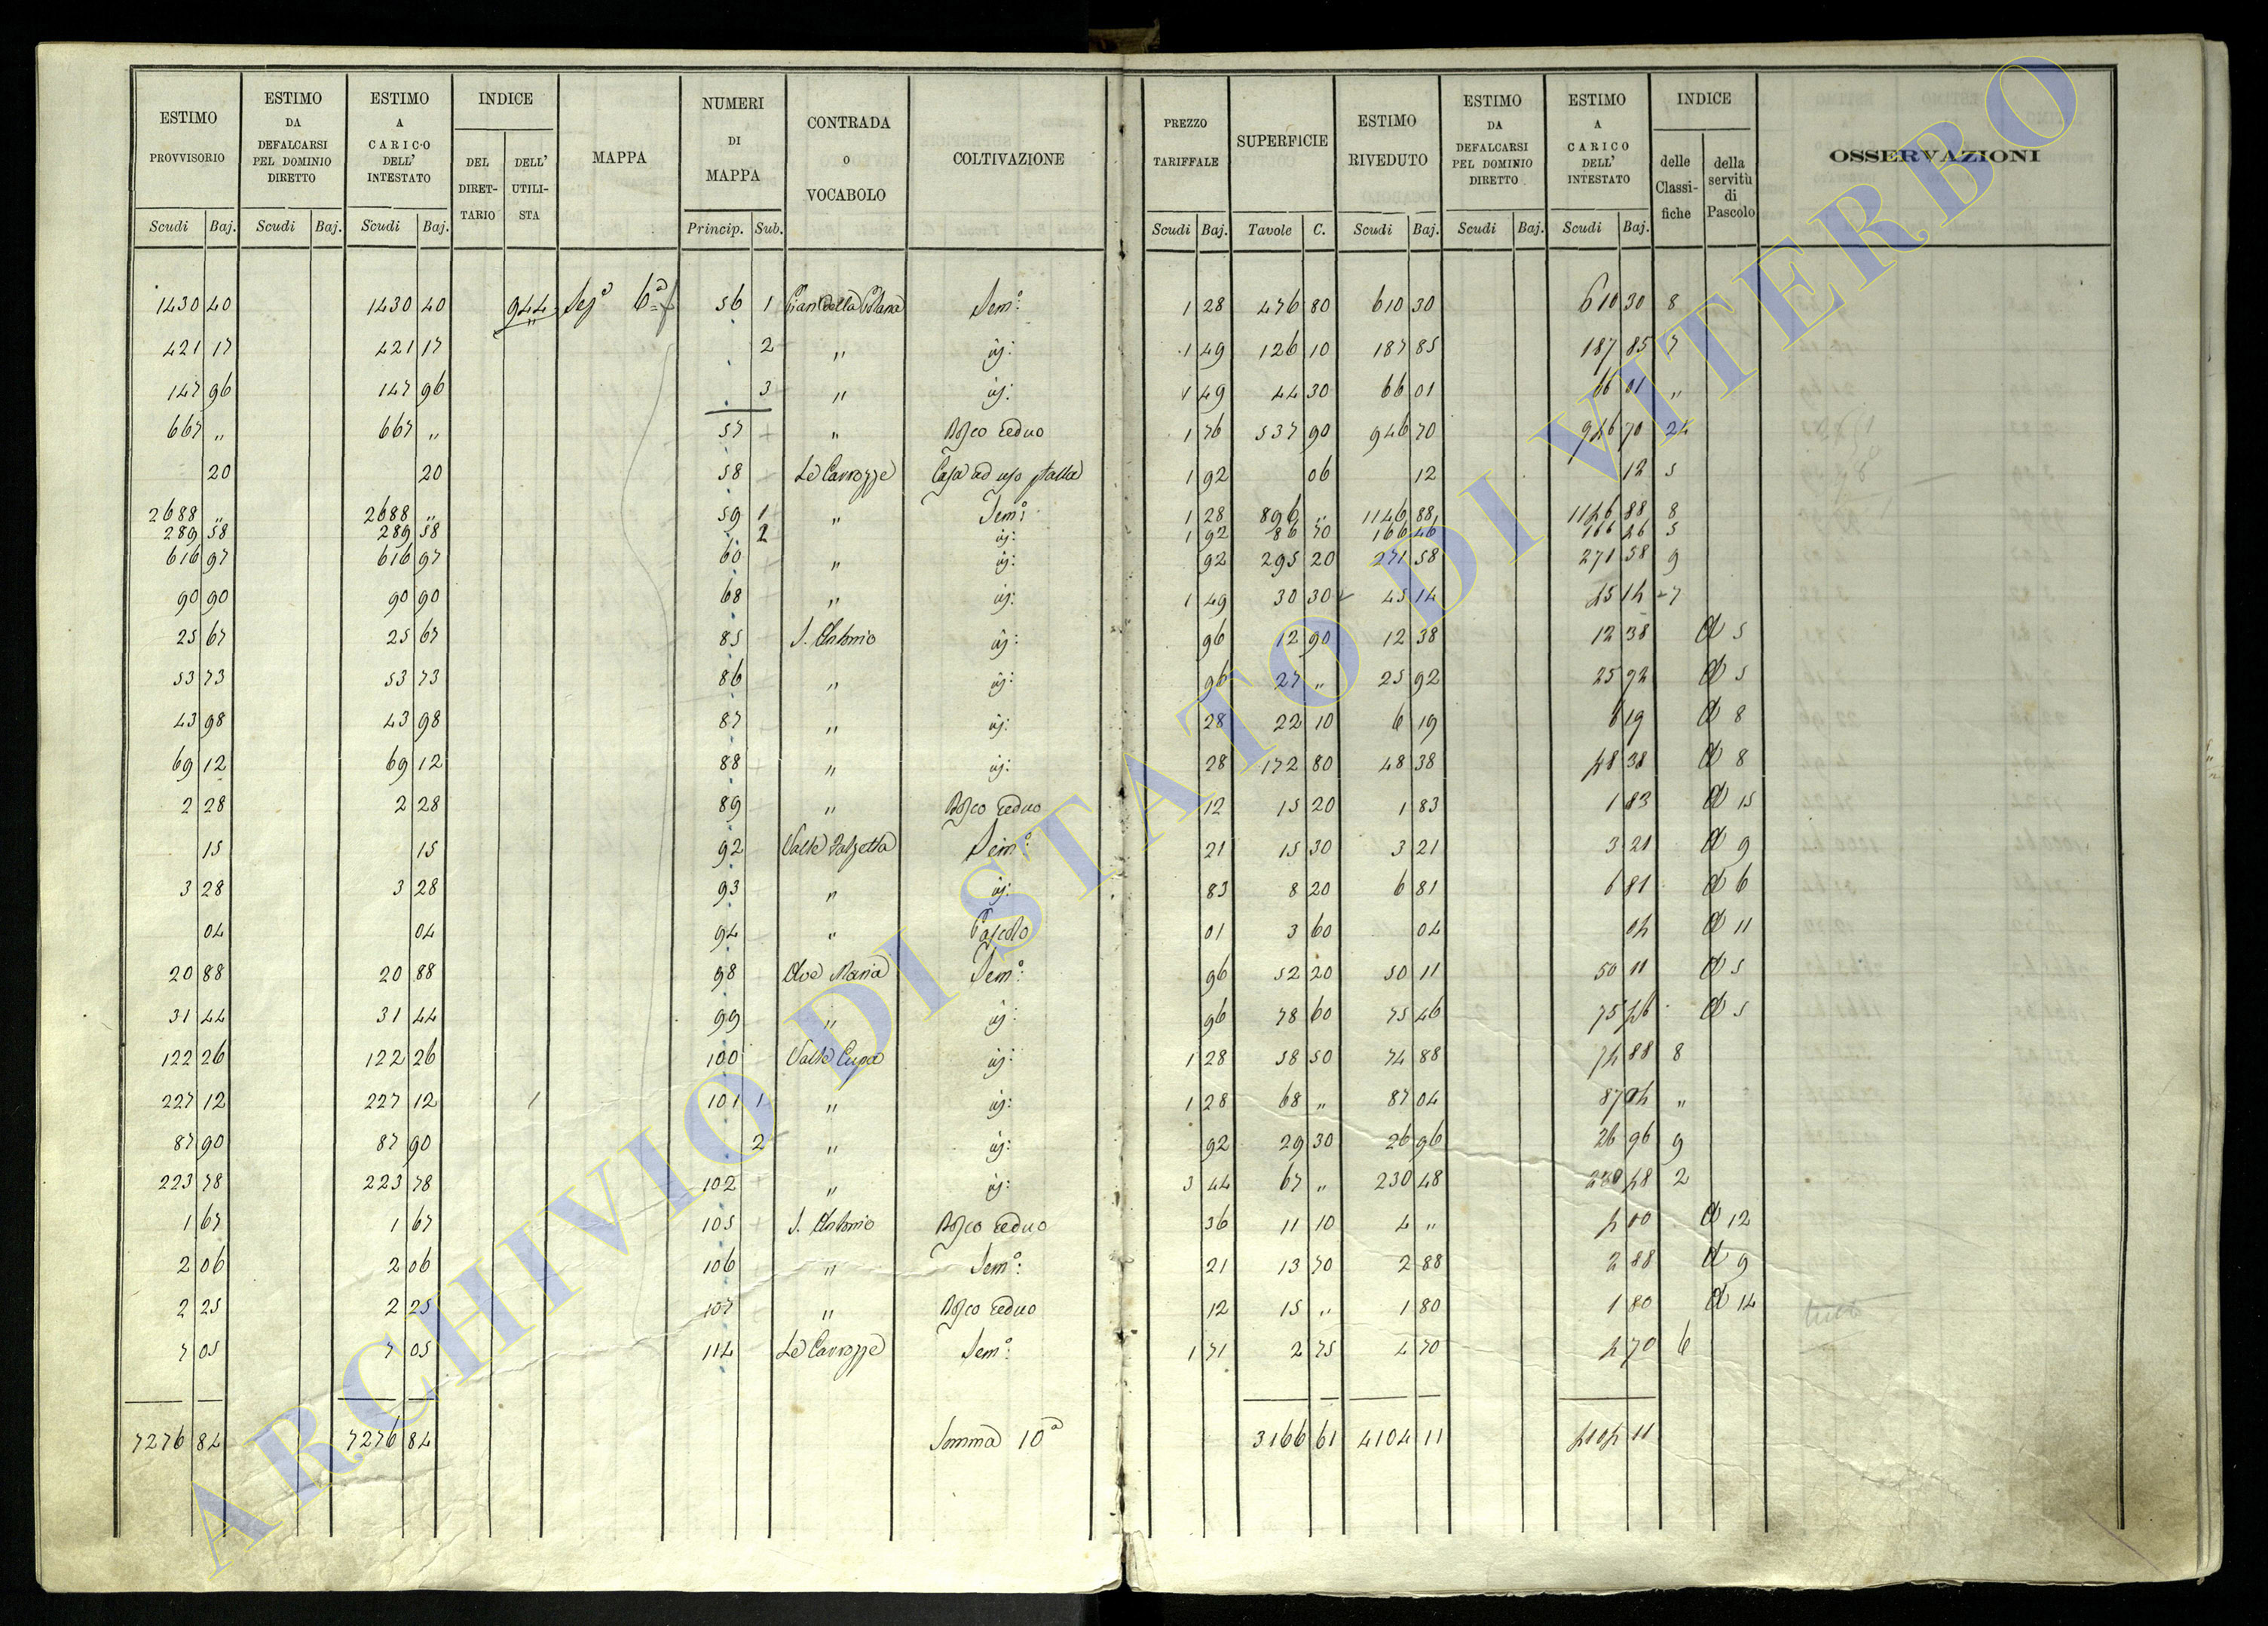 ESTIMO PROVVISORIO
ESTIMO DA DEFALCARSI PEL DOMINIO DIRETTO
ESTIMO A CARICO DELL' INTESTATO
INDICE
DEL DIRETTARIO
DELL' UTILISTA
MAPPA
NUMERI DI MAPPA
CONTRADA o VOCABOLO
COLTIVAZIONE
PREZZO TARIFFALE
SUPERFICIE
ESTIMO RIVEDUTO
ESTIMO DA DEFALCARSI PEL DOMINIO DIRETTO
ESTIMO A CARICO DELL' INTESTATO
INDICE
delle Classifiche
della servitù di Pascolo
OSSERVAZIONI
Scudi Baj. Scudi Baj. Scudi Baj. Princip. Sub. Scudi Baj. Tavole C. Scudi Baj. Scudi Baj. Scudi Baj.
1430 40 1430 40 944 Segª 6ª 56 1 Pian della Sem°: 1 28 476 80 610 30 610 30 8
421 17 421 17 2 " id: 1 49 126 10 187 85 187 85 7
147 96 147 96 3 " id: 1 49 44 30 66 01 66 01 "
667 " 667 " 57 " Bosco ceduo 1 76 537 90 946 70 946 70 24
20 20 58 Le Carrozze Casa ad uso stalla 1 92 06 12 12 5
2688 " 2688 " 59 1 " Sem°: 1 28 896 " 1146 88 1146 88 8
289 58 289 58 2 id: 1 92 86 70 166 46 166 46 5
616 97 616 97 60 " id: 92 295 20 271 58 271 58 9
90 90 90 90 68 " id: 1 49 30 30 45 14 45 14 7
25 67 25 67 85 S. Antonio id: 96 12 90 12 38 12 38 A 5
53 73 53 73 86 " id: 96 27 " 25 92 25 92 A 5
43 98 43 98 87 " id: 28 22 10 6 19 6 19 A 8
69 12 69 12 88 " id: 28 172 80 48 38 48 38 A 8
2 28 2 28 89 " Bosco ceduo 12 15 20 1 83 1 83 A 15
15 15 92 Valle Sem°: 21 15 30 3 21 3 21 A 9
3 28 3 28 93 " id: 83 8 20 6 81 6 81 A 6
04 04 94 " Pascolo 01 3 60 04 04 A 11
20 88 20 88 98 Ave Maria Sem°: 96 52 20 50 11 50 11 A 5
31 44 31 44 99 " id: 96 78 60 75 46 75 46 A 5
122 26 122 26 100 Valle Cupa id: 1 28 58 50 74 88 74 88 8
227 12 227 12 101 1 " id: 1 28 68 " 87 04 87 04 "
87 90 87 90 2 " id: 92 29 30 26 96 26 96 9
223 78 223 78 102 " id: 3 44 67 " 230 48 230 48 2
1 67 1 67 105 S. Antonio Bosco ceduo 36 11 10 4 " 4 00 A 12
2 06 2 06 106 " Sem°: 21 13 70 2 88 2 88 A 9
2 25 2 25 107 " Bosco ceduo 12 15 " 1 80 1 80 A 14
7 05 7 05 114 Le Carrozze Sem°: 1 71 2 75 4 70 4 70 6
7276 84 7276 84 Somma 10ª 3166 61 4104 11 4104 11
ARCHIVIO DI STATO DI VITERBO